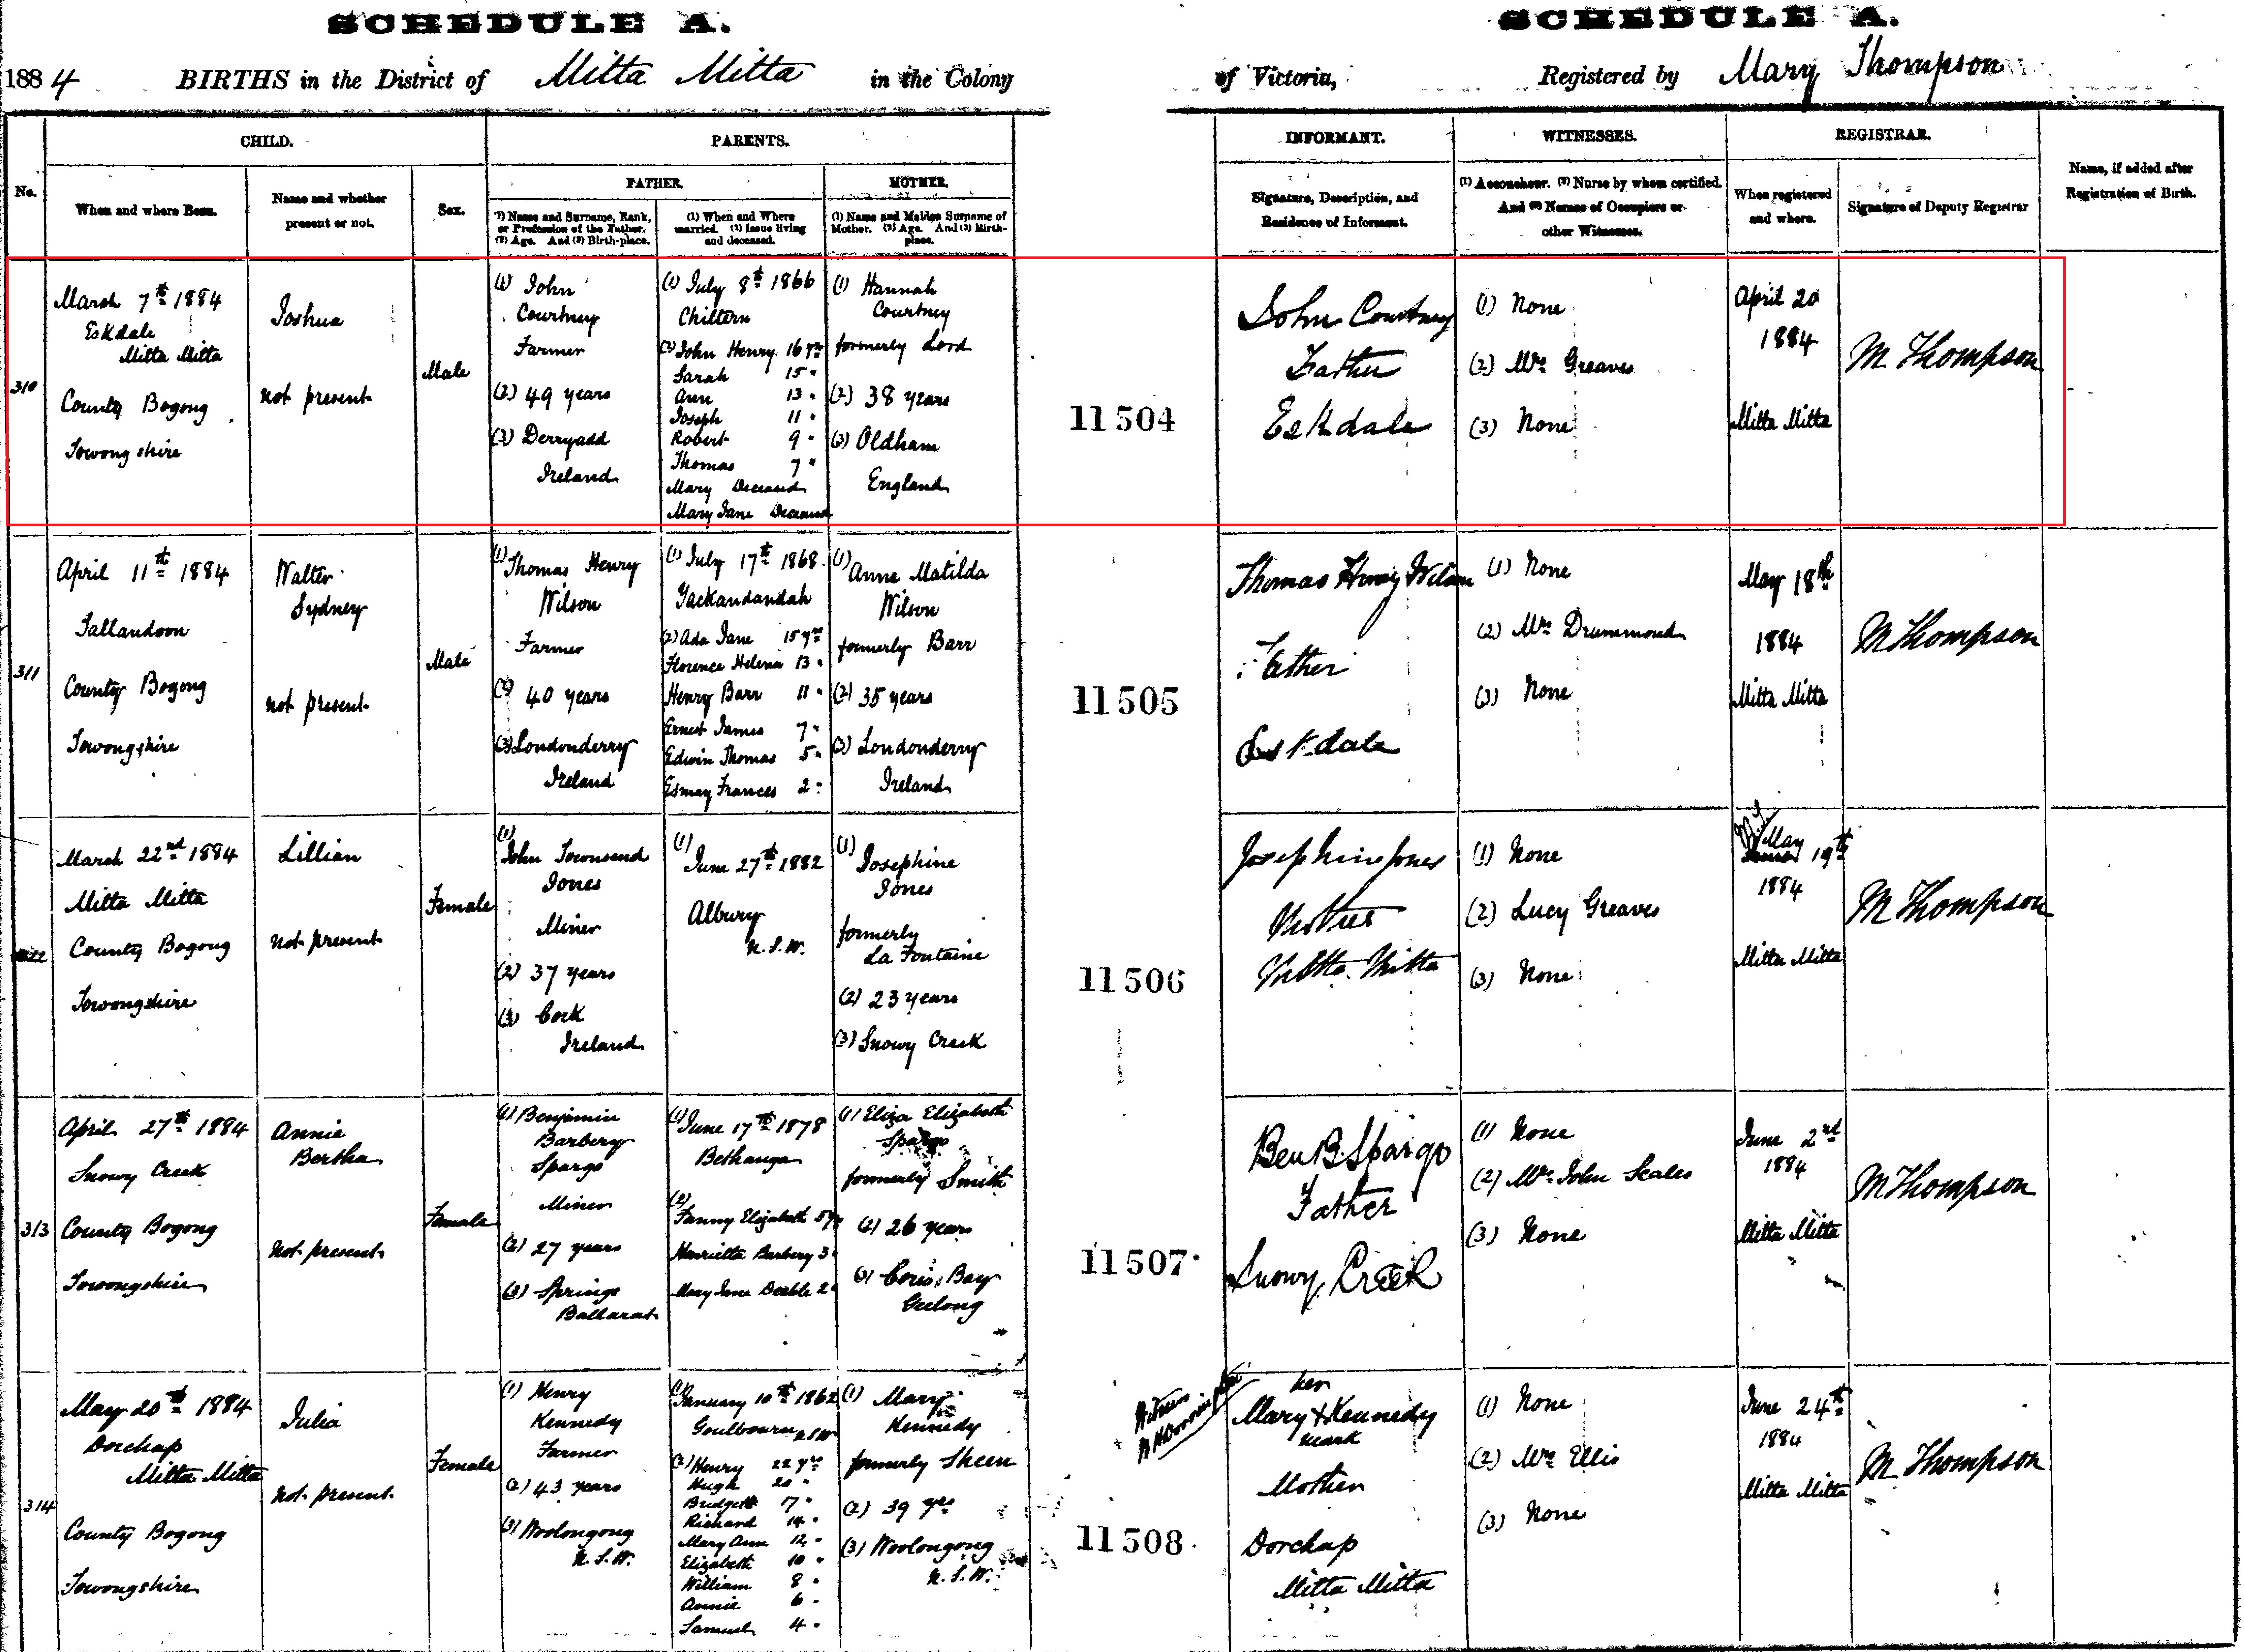 SCHEDULE A.
SCHEDULE A.
1884 BIRTHS in the District of Mitta Mitta in the Colony
of Victoria, Registered by Mary Thompson
No.
CHILD.
When and where Born.
Name and whether
present or not.
Sex.
PARENTS.
FATHER.
(1) Name and Surname, Rank,
or Profession of the Father.
(2) Age. And (3) Birth-place.
(1) When and Where
married. (2) Issue living
and deceased.
MOTHER.
(1) Name and Maiden Surname of
Mother. (2) Age. And (3) Birth-
place.
INFORMANT.
Signature, Description, and
Residence of Informant.
WITNESSES.
(1) Accoucheur. (2) Nurse by whom certified.
And (3) Names of Occupiers or
other Witnesses.
REGISTRAR.
When registered
and where.
Signature of Deputy Registrar
Name, if added after
Registration of Birth.
310
March 7th 1884
Eskdale
Mitta Mitta
County Bogong
Towong shire
Joshua
not present
Male
(1) John
Courtney
Farmer
(2) 49 years
(3) Derryadd
Ireland
(1) July 8th 1866
Chiltern
(2) John Henry 16 yrs
Sarah 15 "
Ann 13 "
Joseph 11 "
Robert 9 "
Thomas 7 "
Mary Deceased
Mary Jane Deceased
(1) Hannah
Courtney
formerly Lord
(2) 38 years
(3) Oldham
England
11504
John Courtney
Father
Eskdale
(1) None
(2) Mrs Greaves
(3) None
April 20
1884
Mitta Mitta
M Thompson
311
April 11th 1884
Tallandoon
County Bogong
Towongshire
Walter
Sydney
not present
Male
(1) Thomas Henry
Wilson
Farmer
(2) 40 years
(3) Londonderry
Ireland
(1) July 17th 1868
Yackandandah
(2) Ada Jane 15 yrs
Florence Helena 13 "
Henry Barr 11 "
Ernest James 7 "
Edwin Thomas 5 "
Esmay Frances 2 "
(1) Anne Matilda
Wilson
formerly Barr
(2) 35 years
(3) Londonderry
Ireland
11505
Thomas Henry Wilson
Father
Eskdale
(1) None
(2) Mrs Drummond
(3) None
May 18th
1884
Mitta Mitta
M Thompson
March 22nd 1884
Mitta Mitta
County Bogong
Towongshire
Lillian
not present
Female
(1)
John Townsend
Jones
Miner
(2) 37 years
(3) Cork
Ireland
(1)
June 27th 1882
Albury
N.S.W.
(1)
Josephine
Jones
formerly
La Fontaine
(2) 23 years
(3) Snowy Creek
11506
Josephine Jones
Mother
Mitta Mitta
(1) None
(2) Lucy Greaves
(3) None
May 19th
1884
Mitta Mitta
M Thompson
313
April 27th 1884
Snowy Creek
County Bogong
Towongshire
Annie
Bertha
Not present
Female
(1) Benjamin
Barbery
Spargo
Miner
(2) 27 years
(3) Springs
Ballarat
(1) June 17th 1878
Bethanga
(2)
Fanny Elizabeth 5 yrs
Henrietta Barbery 3 "
Mary Jane Deeble 2 "
(1) Eliza Elizabeth
Spargo
formerly Smith
(2) 26 years
(3) Corio Bay
Geelong
11507
Ben B. Spargo
Father
Snowy Creek
(1) None
(2) Mrs John Scales
(3) None
June 2nd
1884
Mitta Mitta
M Thompson
314
May 20th 1884
Dorchap
Mitta Mitta
County Bogong
Towongshire
Julia
Not present
Female
(1) Henry
Kennedy
Farmer
(2) 43 years
(3) Woolongong
N.S.W.
(1) January 10th 1862
Goulbourn N.S.W
(2) Henry 22 yrs
Hugh 20 "
Bridgett 17 "
Richard 14 "
Mary Ann 12 "
Elizabeth 10 "
William 8 "
Annie 6 "
Samuel 4 "
(1) Mary
Kennedy
formerly Skeen
(2) 39 yrs
(3) Woolongong
N.S.W.
11508
Witness
her
Mary X Kennedy
mark
Mother
Dorchap
Mitta Mitta
(1) None
(2) Mrs Ellis
(3) None
June 24th
1884
Mitta Mitta
M Thompson